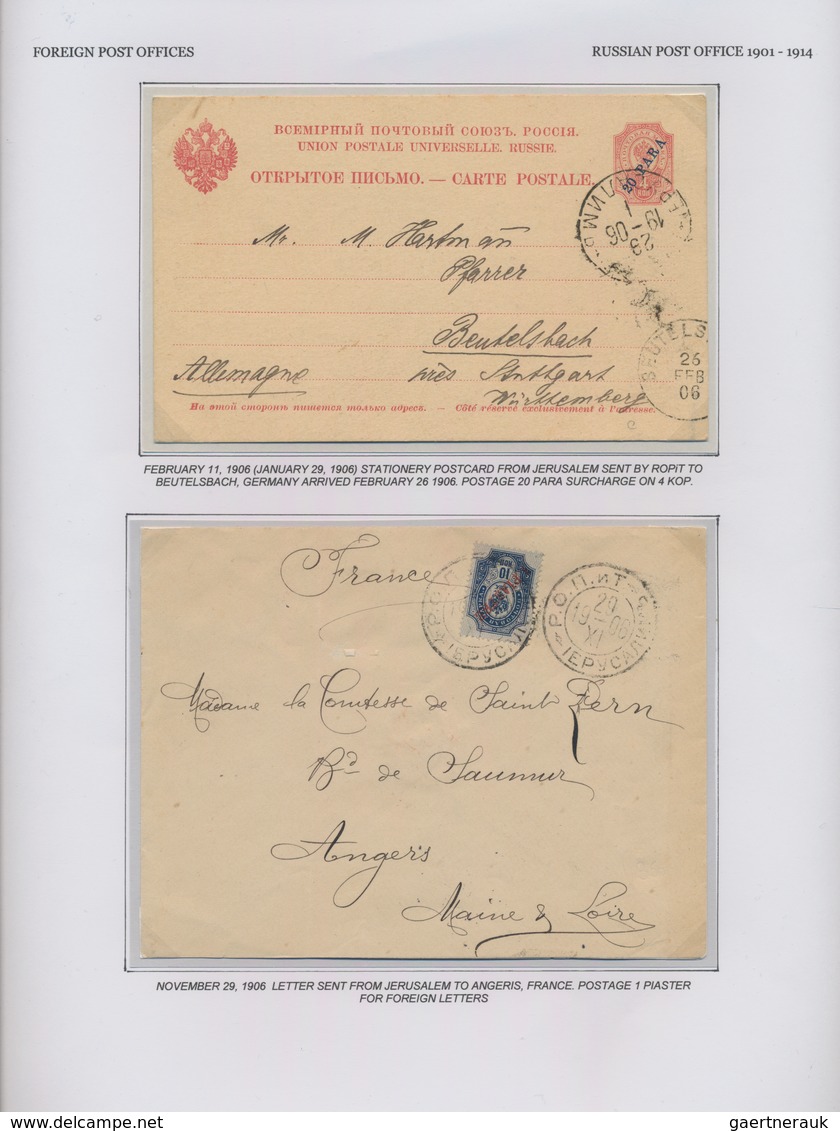 FOREIGN POST OFFICES
RUSSIAN POST OFFICE 1901 - 1914
ВСЕМІРНЫЙ ПОЧТОВЫЙ СОЮЗЪ. РОССІЯ.
UNION POSTALE UNIVERSELLE. RUSSIE.
ОТКРЫТОЕ ПИСЬМО. — CARTE POSTALE.
20 PARA
19 - 06
Mr. M. Hartmañ
Pfarrer
Beutelsbach
Allemagne près Stuttgart
Württemberg
BEUTELS
26
FEB
06
На этой сторонѣ пишется только адресъ. — Côté réservé exclusivement à l'adresse.
FEBRUARY 11, 1906 (JANUARY 29, 1906) STATIONERY POSTCARD FROM JERUSALEM SENT BY ROPiT TO
BEUTELSBACH, GERMANY ARRIVED FEBRUARY 26 1906. POSTAGE 20 PARA SURCHARGE ON 4 KOP.
France
10
Р.О.П.
ІЕРУСАЛ
Р.О.П.иТ
19 - 06
XI
ІЕРУСАЛИ
Madame la Comtesse de Saint Pern
Bd de Saumur
Angers
Maine & Loire
NOVEMBER 29, 1906 LETTER SENT FROM JERUSALEM TO ANGERIS, FRANCE. POSTAGE 1 PIASTER
FOR FOREIGN LETTERS
www.gaertnerauk.com